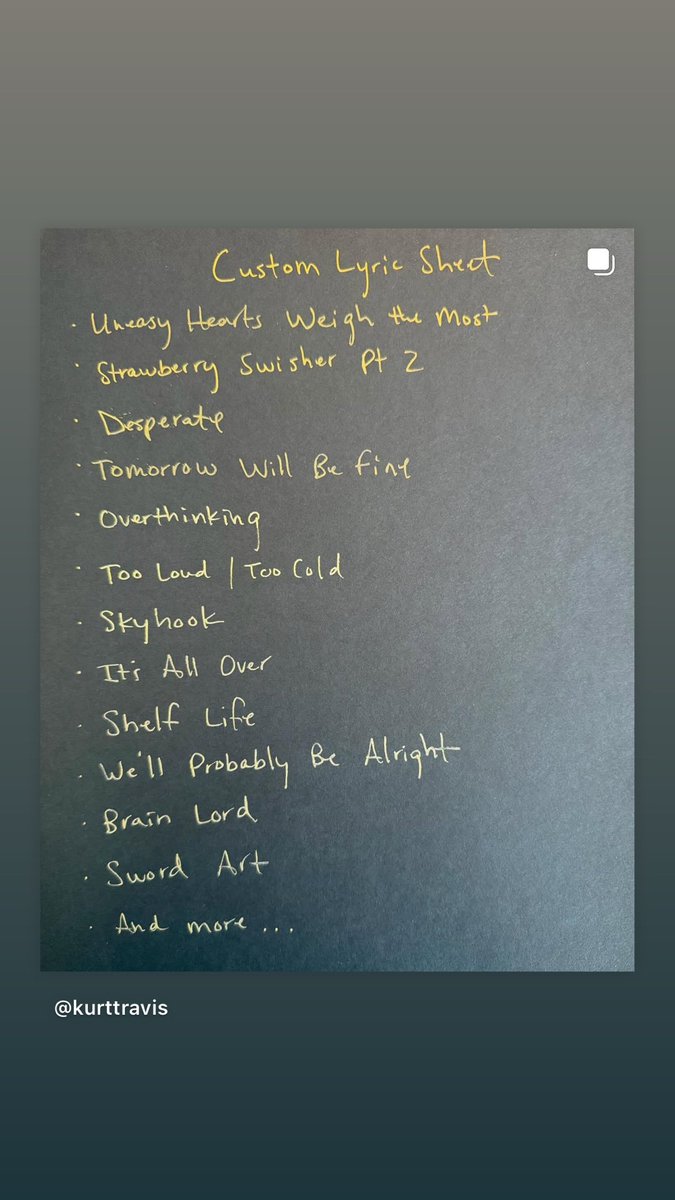 Custom Lyric Sheet
· Uneasy Hearts Weigh the Most
· Strawberry Swisher Pt 2
· Desperate
· Tomorrow Will Be Fine
· Overthinking
· Too Loud | Too Cold
· Skyhook
· It's All Over
· Shelf Life
· We'll Probably Be Alright
· Brain Lord
· Sword Art
· And more ...
@kurttravis